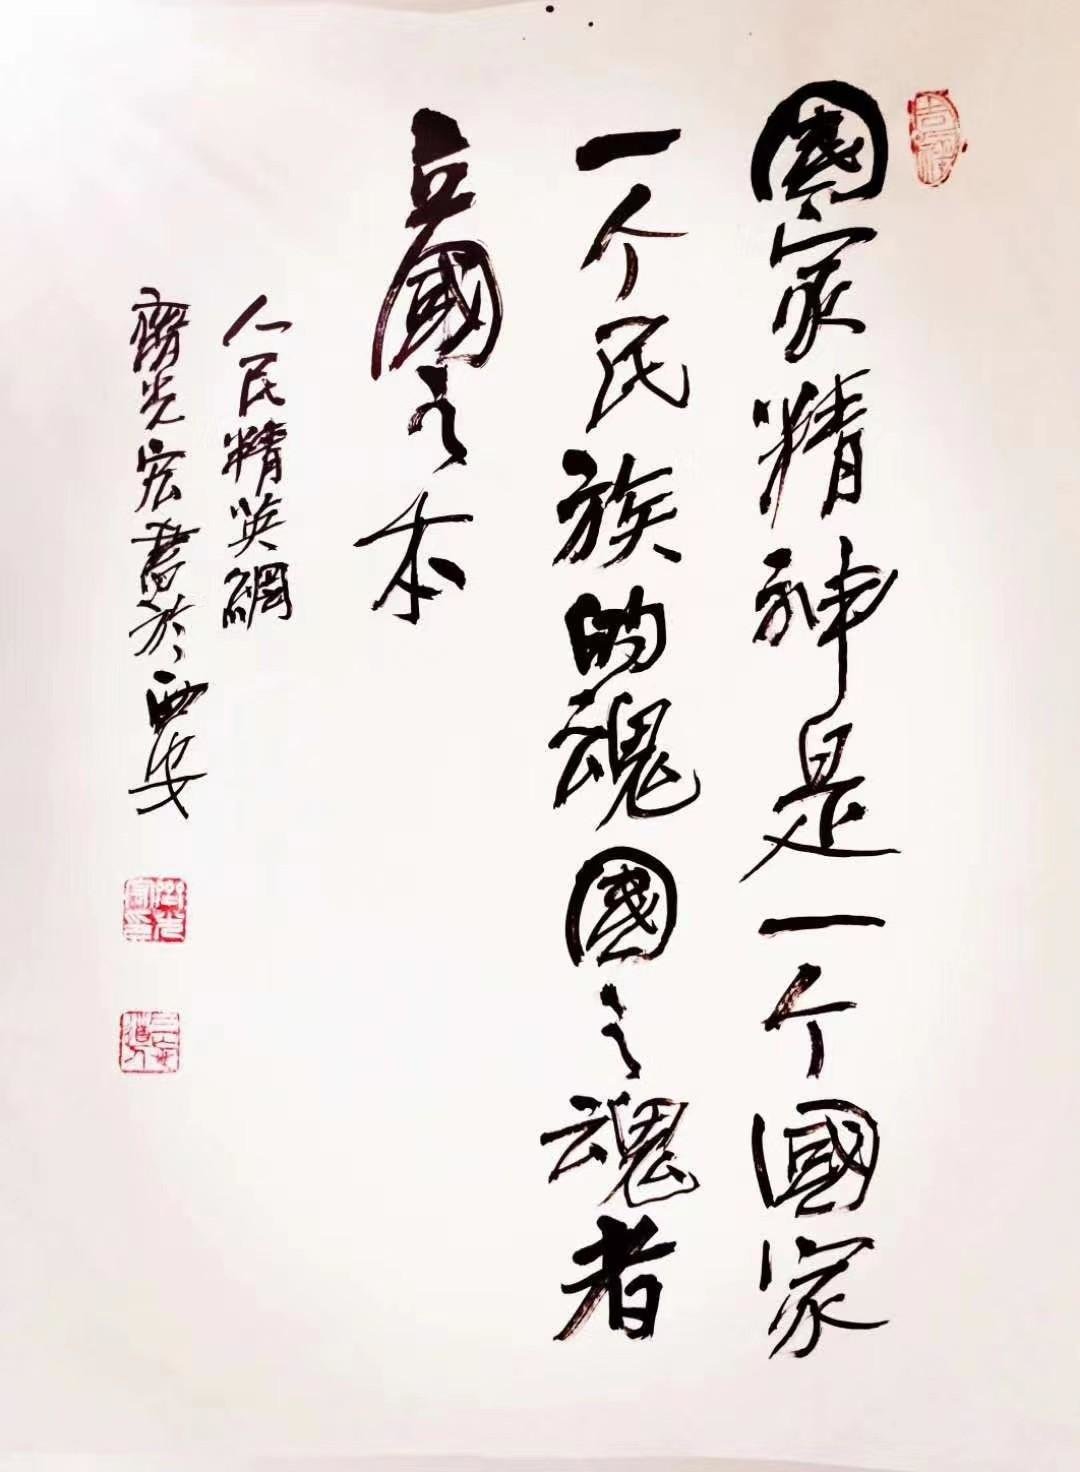 國家精神是一个國家
一个民族的魂國之魂者
立國之本
人民精英網
齊光宏書於西安